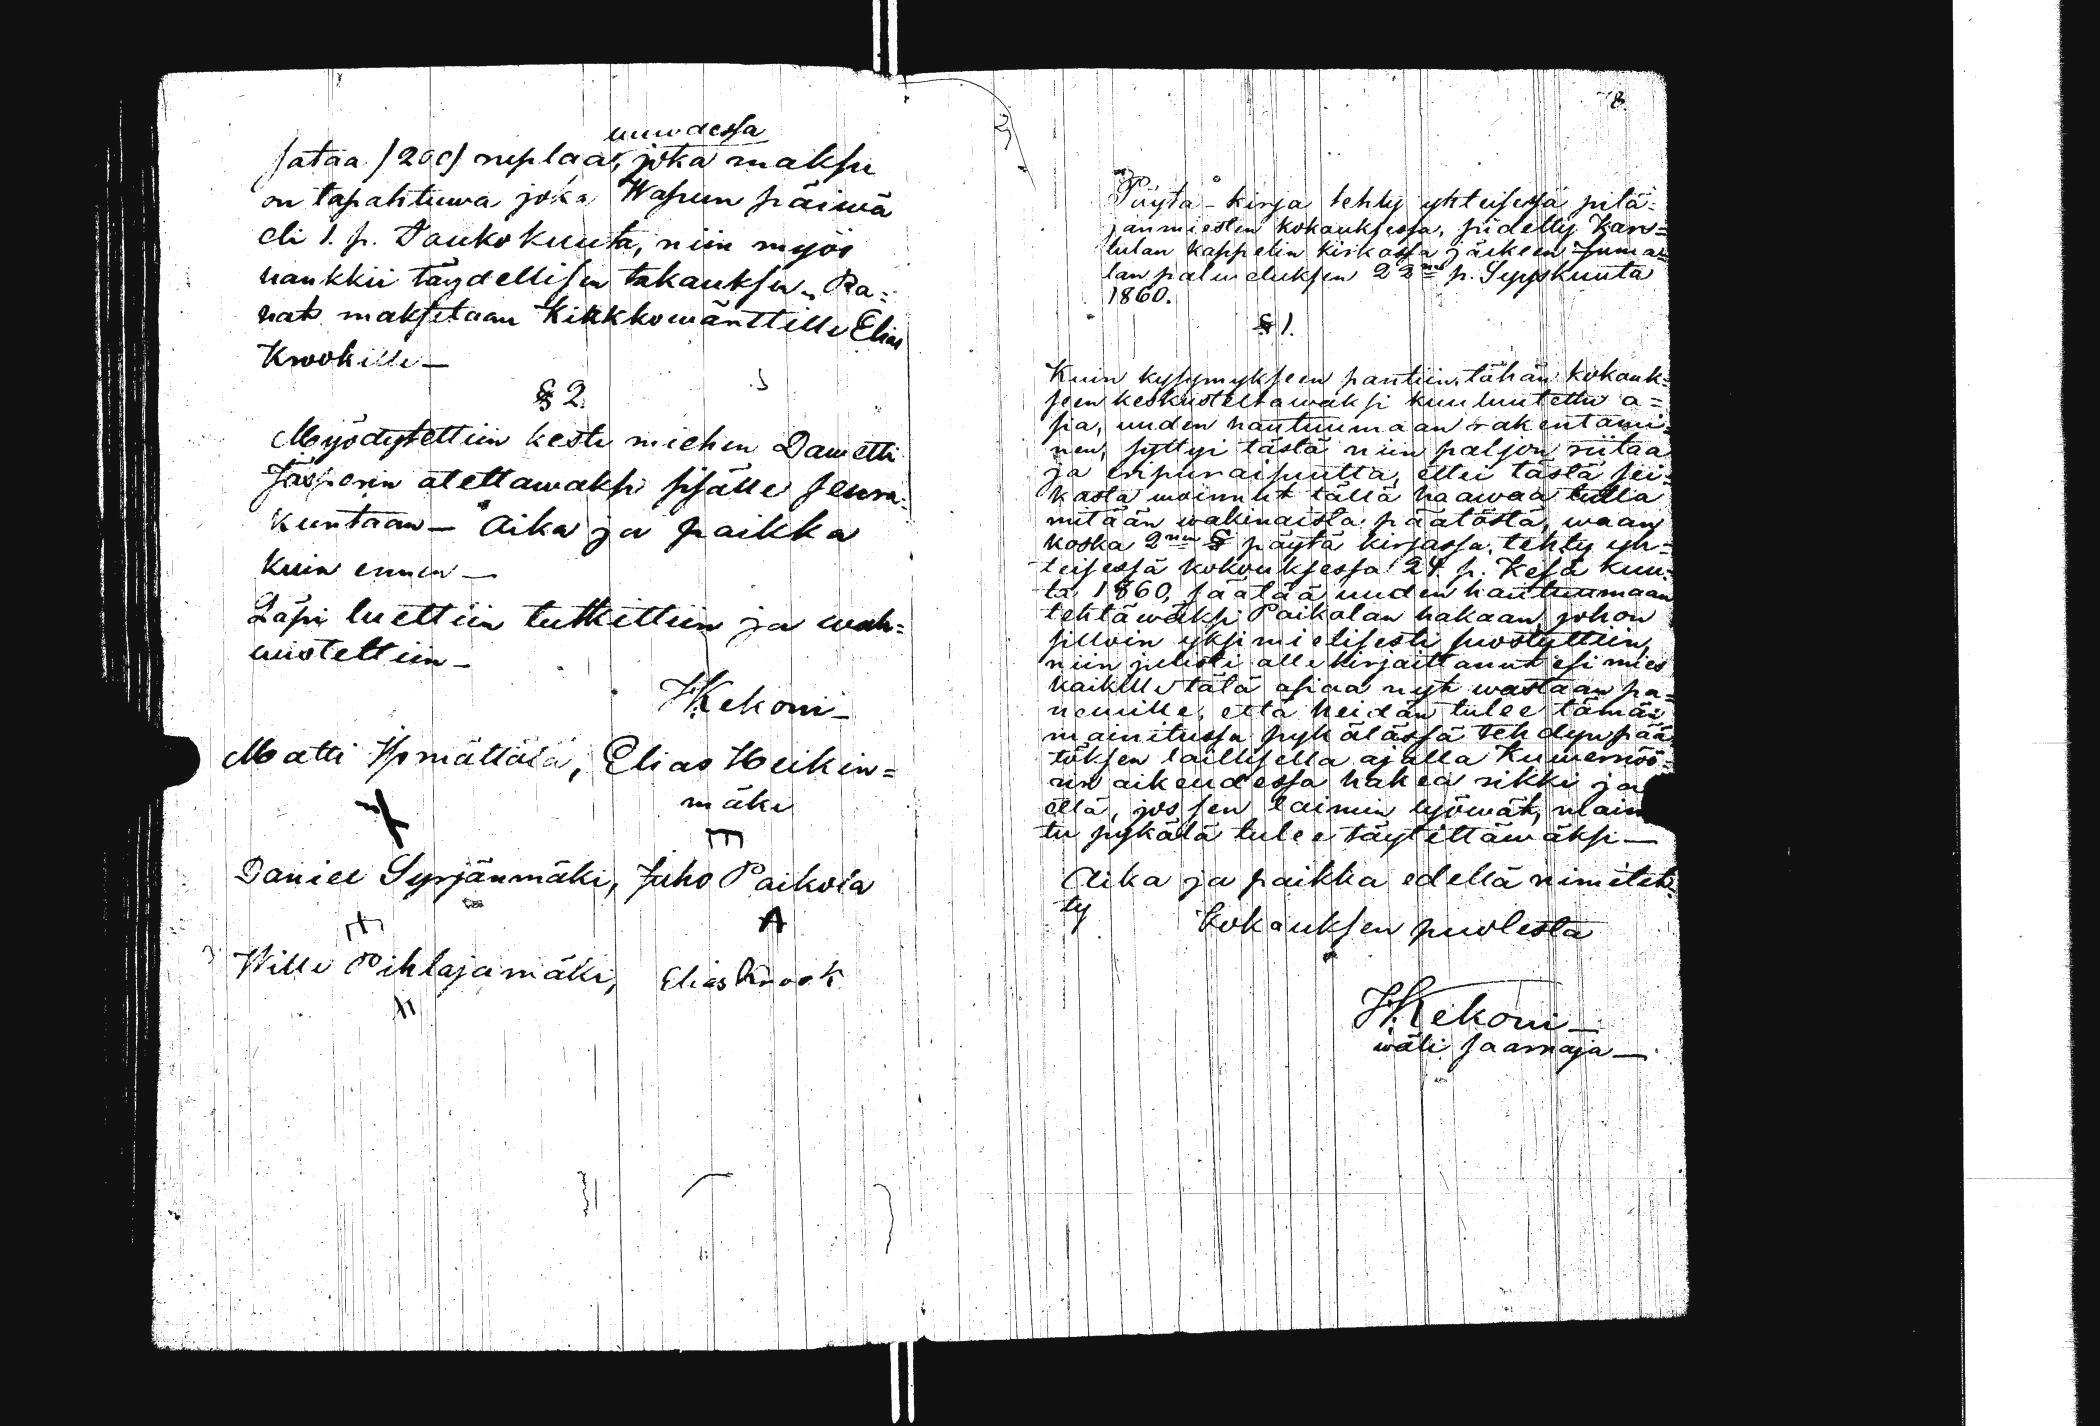 wuwdessa
sataa /200/ ruplaa, joka maksu
on tapahtuwa joka Wapun päiwä
eli 1. p. Toukokuuta, niin myös
hankkii täydellisen takauksen. Ra=
hat maksetaan Kirkkowänttille Elias
Krookille—
§ 2.
Myödytettiin kesti miehen Taawetti
Jäsperin otettawaksi sisälle seura-
kuntaan— Aika ja paikka
kuin ennen—
Läpi luettiin tutkittiin ja wah=
wistettiin—
HKekoni—
Matti Ismättälä, Elias Heikin=
mäki
Daniel Syrjänmäki, Juho Paikola
Wille Pihlajamäki, Elias Krook
8.
Pöytä-kirja tehty yhteisessä pitä=
jänmiesten kokouksessa, pidetty Kars=
tulan kappelin kirkossa jälkeen Juma=
lan palweluksen 23 p. Syyskuuta
1860.
§ 1.
Kuin kysymykseen pantiin, tähän kokouk=
seen keskusteltawaksi kuuluutettu a=
sia, uuden hautuumaan rakentami=
nen, syttyi tästä niin paljon riitaa
ja eripuraisuutta, ettei tästä sei=
kasta woinnut tällä haawaa tulla
mitään wakinaista päätöstä, waan
koska 2nen § pöytä kirjassa, tehty yh=
teisessä kokouksessa 24 p. Kesä kuu=
ta 1860, säätää uuden hautuumaan
tehtäwäksi Paikolan hakaan, johon
silloin yksimielisesti suostuttiin,
niin julisti allekirjoittanut esimies
kaikille tätä asiaa nyt wastaan pa=
neuille, että heidän tulee tämän
mainitussa pykälässä tehdyn pää
töksen laillisella ajalla Kuwernöö=
rin oikeudessa hakea rikki ja
että, jos sen laimin lyöwät, main
tu pykälä tulee täytettäwäksi—
Aika ja paikka edellä nimitet=
ty
kokouksen puolesta
HKekoni—
wäli saarnaja—